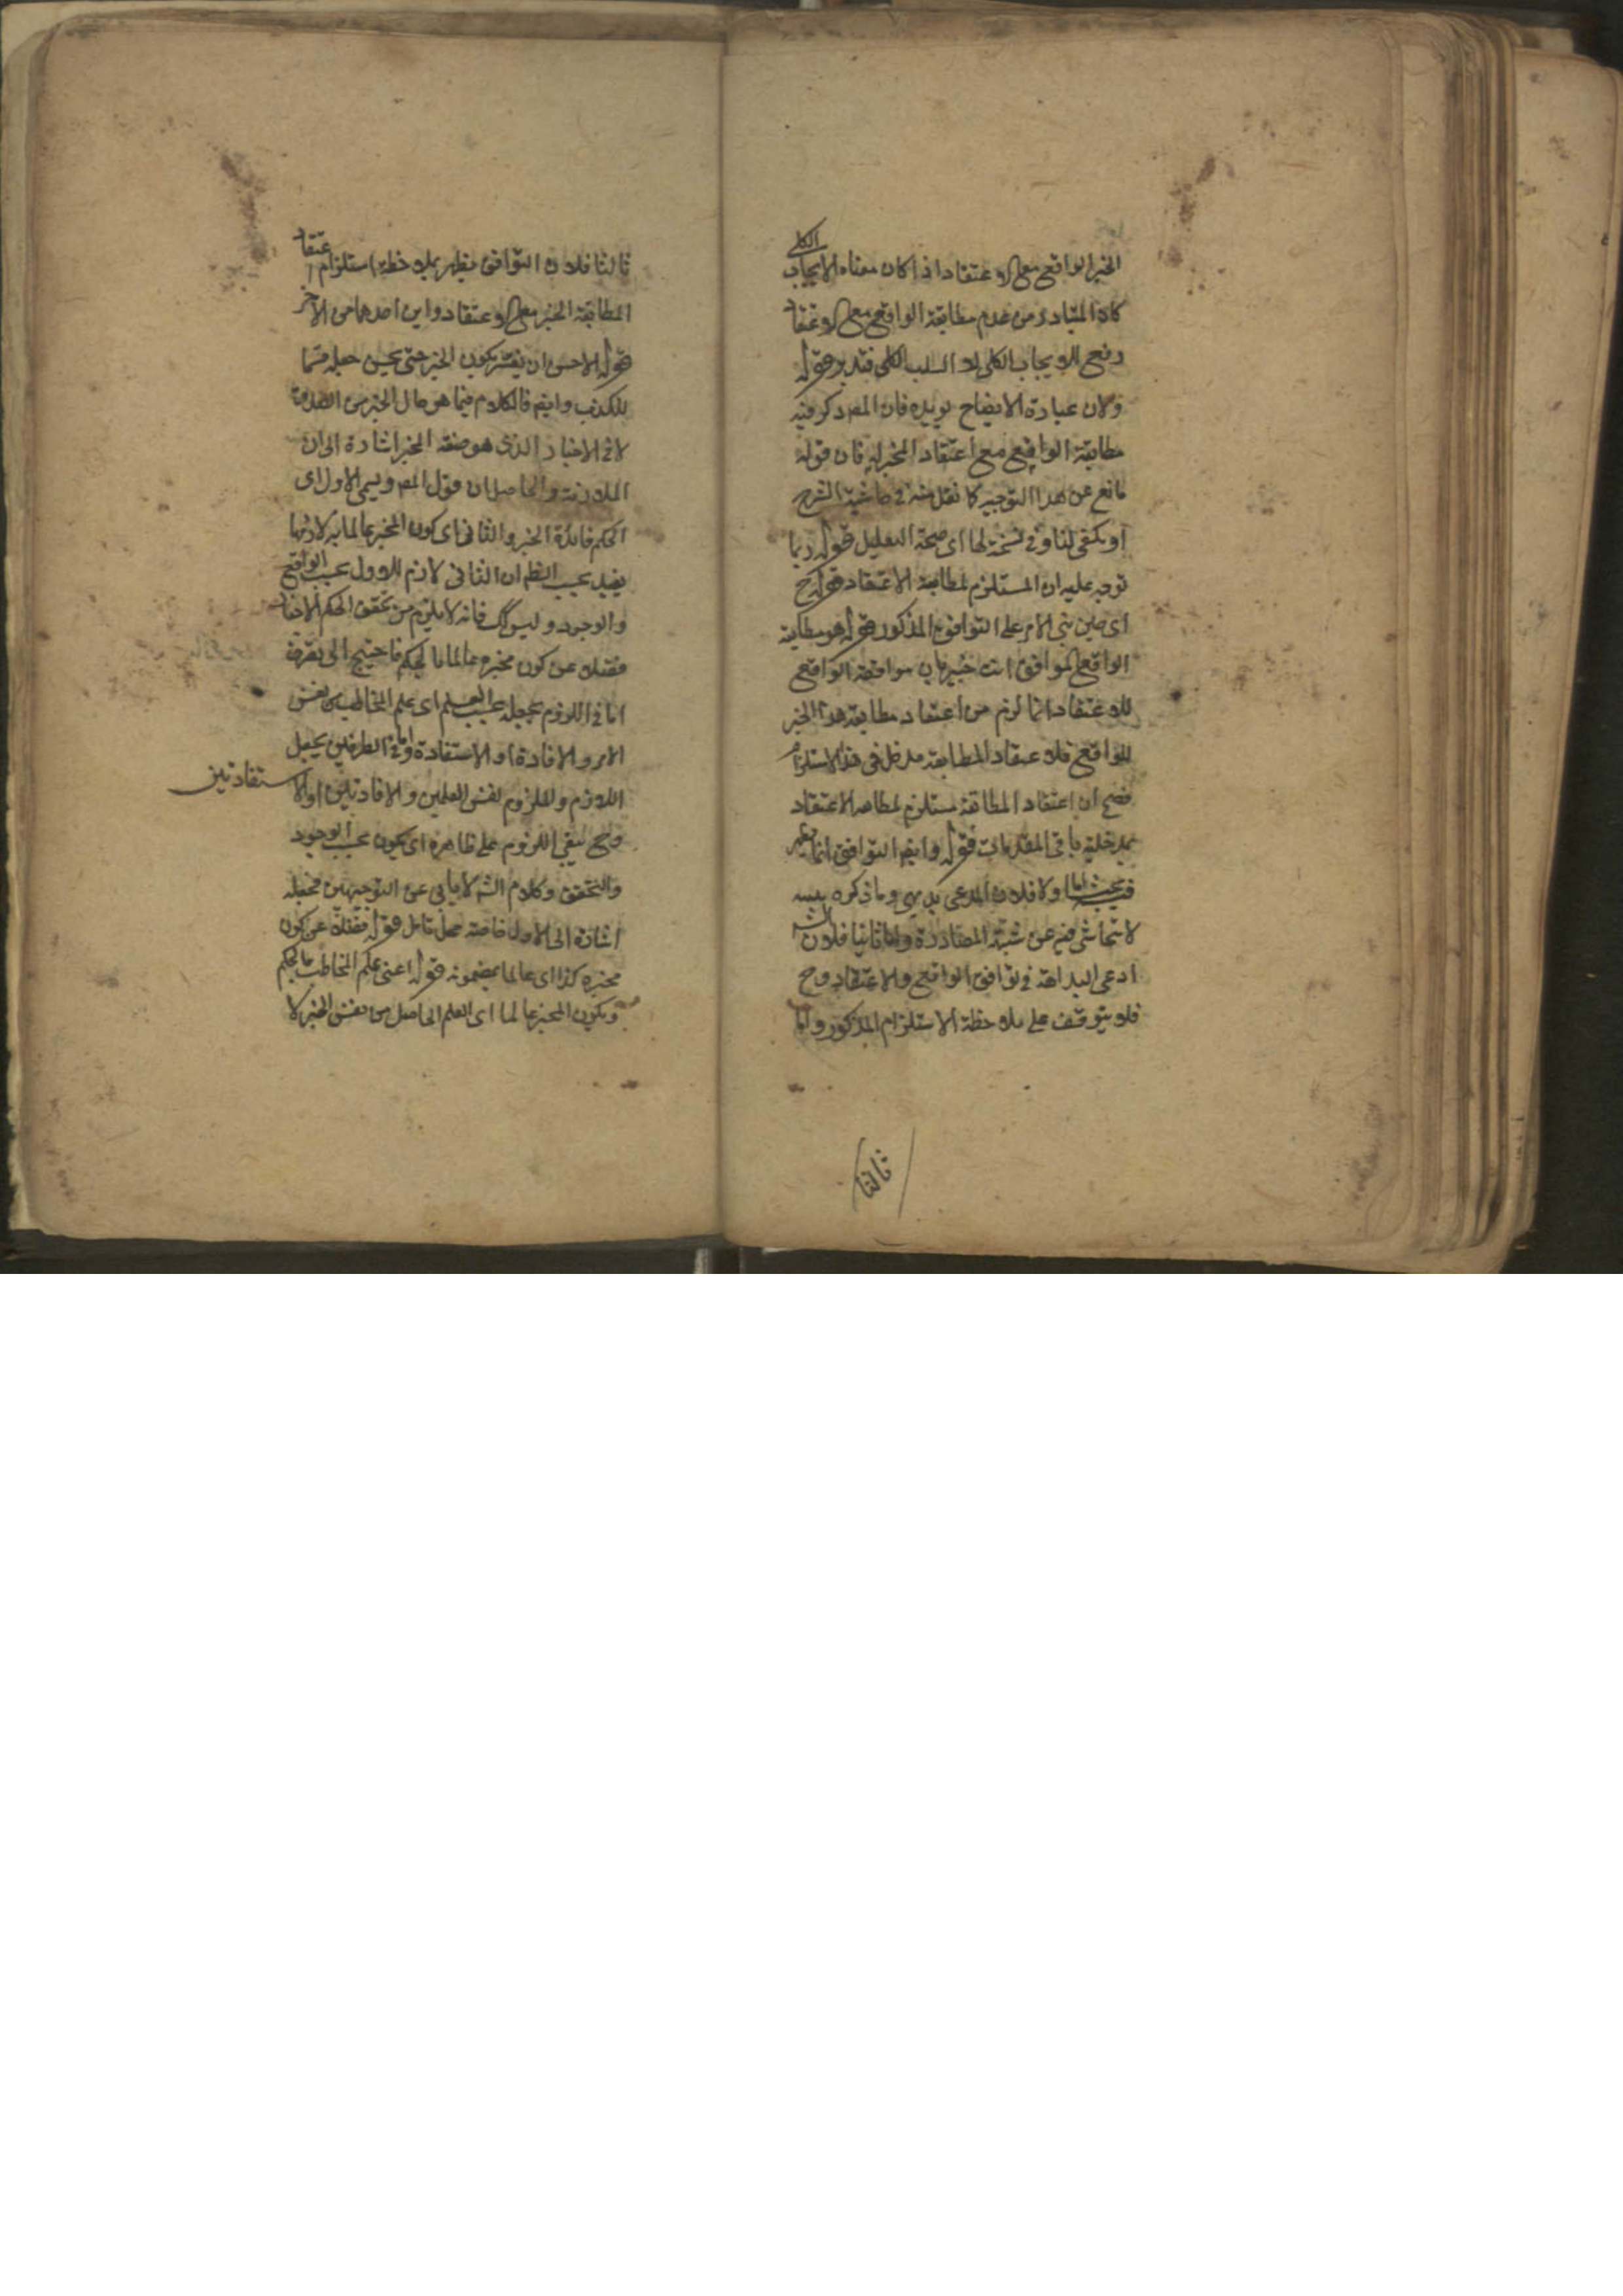 الخبر الواقع مع الاعتقاد اذا كان معناه الايجاب الكلى
كان المتبادر من عدم مطابقة الواقع مع الاعتقاد
رفع الايجاب الكلى لا السلب الكلى فتدبر قوله
ولان عبارة الايضاح يويده فان المص ذكر فيه
مطابقة الواقع مع اعتقاد المخبر له فان قوله
مانع عن هذا التوجيه كما نقل منه فى حاشية الشرح
او يكفى لنا وفى نسخة لها اى صحة التعليل قوله ربما
توجه عليه ان المستلزم لمطابقة الاعتقاد قوله ح
اى حين بنى الامر على التوافق المذكور قوله هو مطابقة
الواقع الموافق انت خبير بان موافقة الواقع
للاعتقاد انما لزم من اعتقاد مطابقة هذا الخبر
للواقع فلاعتقاد المطابقة مدخل فى هذا الاستلزام
فصح ان اعتقاد المطابقة مستلزم لمطابقة الاعتقاد
بمدخلية باقى المقدمات قوله وايض التوافق انما يظهر
فيه بحث اما اولا فلان المدعى بديهى وما ذكره
لا تحاشى فيه عن شبهة المصادرة واما ثانيا فلان الش
ادعى البداهة فى توافق الواقع والاعتقاد وح
فلا يتوقف على ملاحظة الاستلزام المذكور واما
ثالثا
ثالثا فلان التوافق يظهر بملاحظة استلزام اعتقاد
المطابقة الخبر مع الاعتقاد واين احدهما من الاخر
قوله الاحسن ان يفسر بكون الخبر حتى يحسن جعله قسما
للكذب وايض فالكلام فيما هو حال الخبر من الصدق
لا فى الاخبار الذى هو صفة المخبر اشارة الى ان
الملازمة والحاصل ان قول المص ويسمى الاول اى
الحكم فائدة الخبر والثانى اى كون المخبر عالما به لازمها
يفيد بحسب الظ ان الثانى لازم للاول بحسب الواقع
والوجود وليس كك فانه لا يلزم من تحقق الحكم
فضلا عن كون مخبره عالما بالحكم فاحتيج الى تصرف
اما فى اللزوم بجعله بحسب العلم اى علم المخاطب من نفس
الامر والافادة او الاستفادة واما فى الطرفين بجعل
اللازم والملزوم نفس العلمين والافادتين او الاستفادتين
وح يبقى اللزوم على ظاهره اى يكون بحسب الوجود
والتحقق وكلام الش لا يابى عن التوجيهين فجعله
اشارة الى الاول خاصة محل تامل قوله فضلا عن كون
مخبره كذا اى عالما بمضمونه قوله اعنى علم المخاطب بالحكم
وبكون المخبر عالما اى العلم الحاصل من نفس الخبر لا